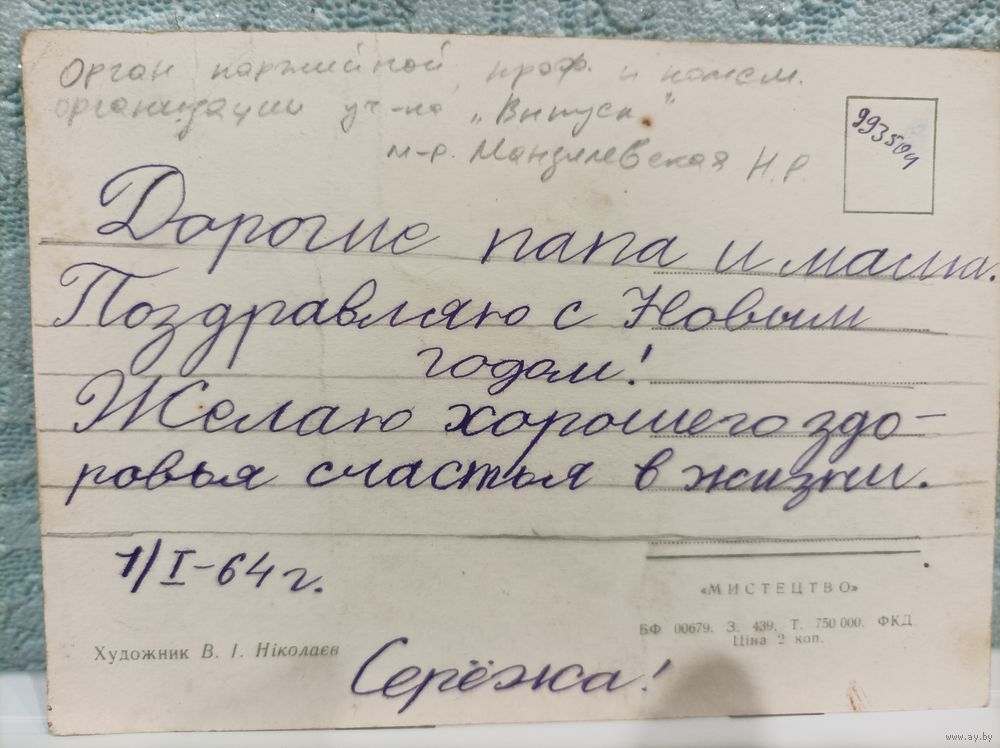 Орган партийной проф. и комсм.
организации уч-ка „Выпуск"
м-р. Мандилевская Н.Р.
993504
Дорогие папа и мама.
Поздравляю с Новым
годом!
Желаю хорошего здо-
ровья счастья в жизни.
1/I-64 г.
Серёжа!
«МИСТЕЦТВО»
БФ 00679. З. 439. Т. 750 000. ФКД
Ціна 2 коп.
Художник В. І. Ніколаєв
www.ay.by